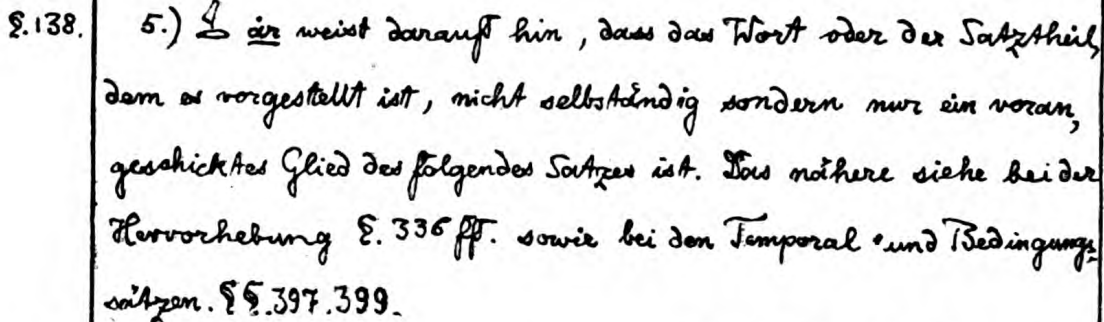 §.138. 5.) 𓁷 ȧr weist darauf hin, dass das Wort oder der Satztheil,
dem es vorgestellt ist, nicht selbständig sondern nur ein voran,
geschicktes Glied des folgendes Satzes ist. Das nähere siehe bei der
Hervorhebung §. 336 ff. sowie bei den Temporal- und Bedingungs-
sätzen. §§.397.399.